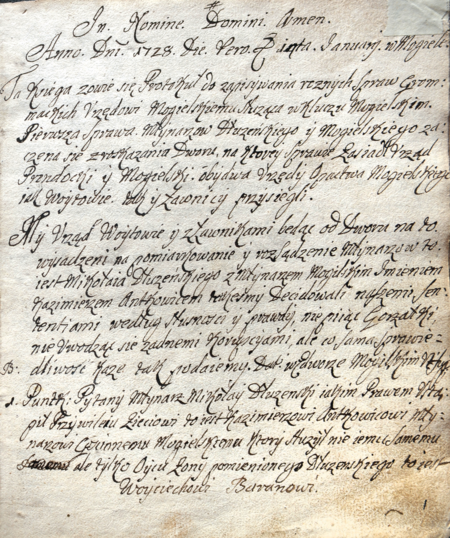 In Nomine Domini Amen.
Anno Dni. 1728. Die Vero 7 Januarij. w Mogiele
Ta Księga zowie się Protokuł do zapisywania roznych Spraw Grom=
mackich Urzędowi Mogielskiemu służąca w Kluczu Mogielskim.
Pierwsza Sprawa. Młynarzow Dłuzenskiego y Mogielskiego za=
czena się z rozkazania Dworu, na ktorey Sprawie Zasiadł Urząd
Prandocki y Mogielski. obydwa Urzędy Opactwa Mogielskiego
iak Woytowie. tak y Ławnicy przysiegli.
My Urząd Woytowie z Ławnikami będąc od Dworu na to
wysadzeni na pomiarkowanie y rozsądzenie Młynarzow to
iest Mikołaia Dłuzenskiego z Młynarzem Mogilskim Imieniem
Kazimierzem Antkowicem takiesmy Decidowali naszemi Sen=
tentiami według słusnosci y prawdy, nie piiąc Gorzałki
nie Uwodząc się zadnemi Korupcyami, ale co sama sprawie=
dliwosć kaze tak podaiemy. Dat: w Dworze Mogilskim
1. Punkt: Pytany Młynarz Mikołay Dłuzenski iakim Prawem Ustą=
pił Przywileiu Zięciowi to iest Kazimierzowi Antkowicowi Mły=
narzowi Czynnemu Mogielskiemu Ktory służył nie iemu samemu
ale tylko Oycu Zony pomienionego Dłuzenskiego to iest
Woyciechowi Baranowi.